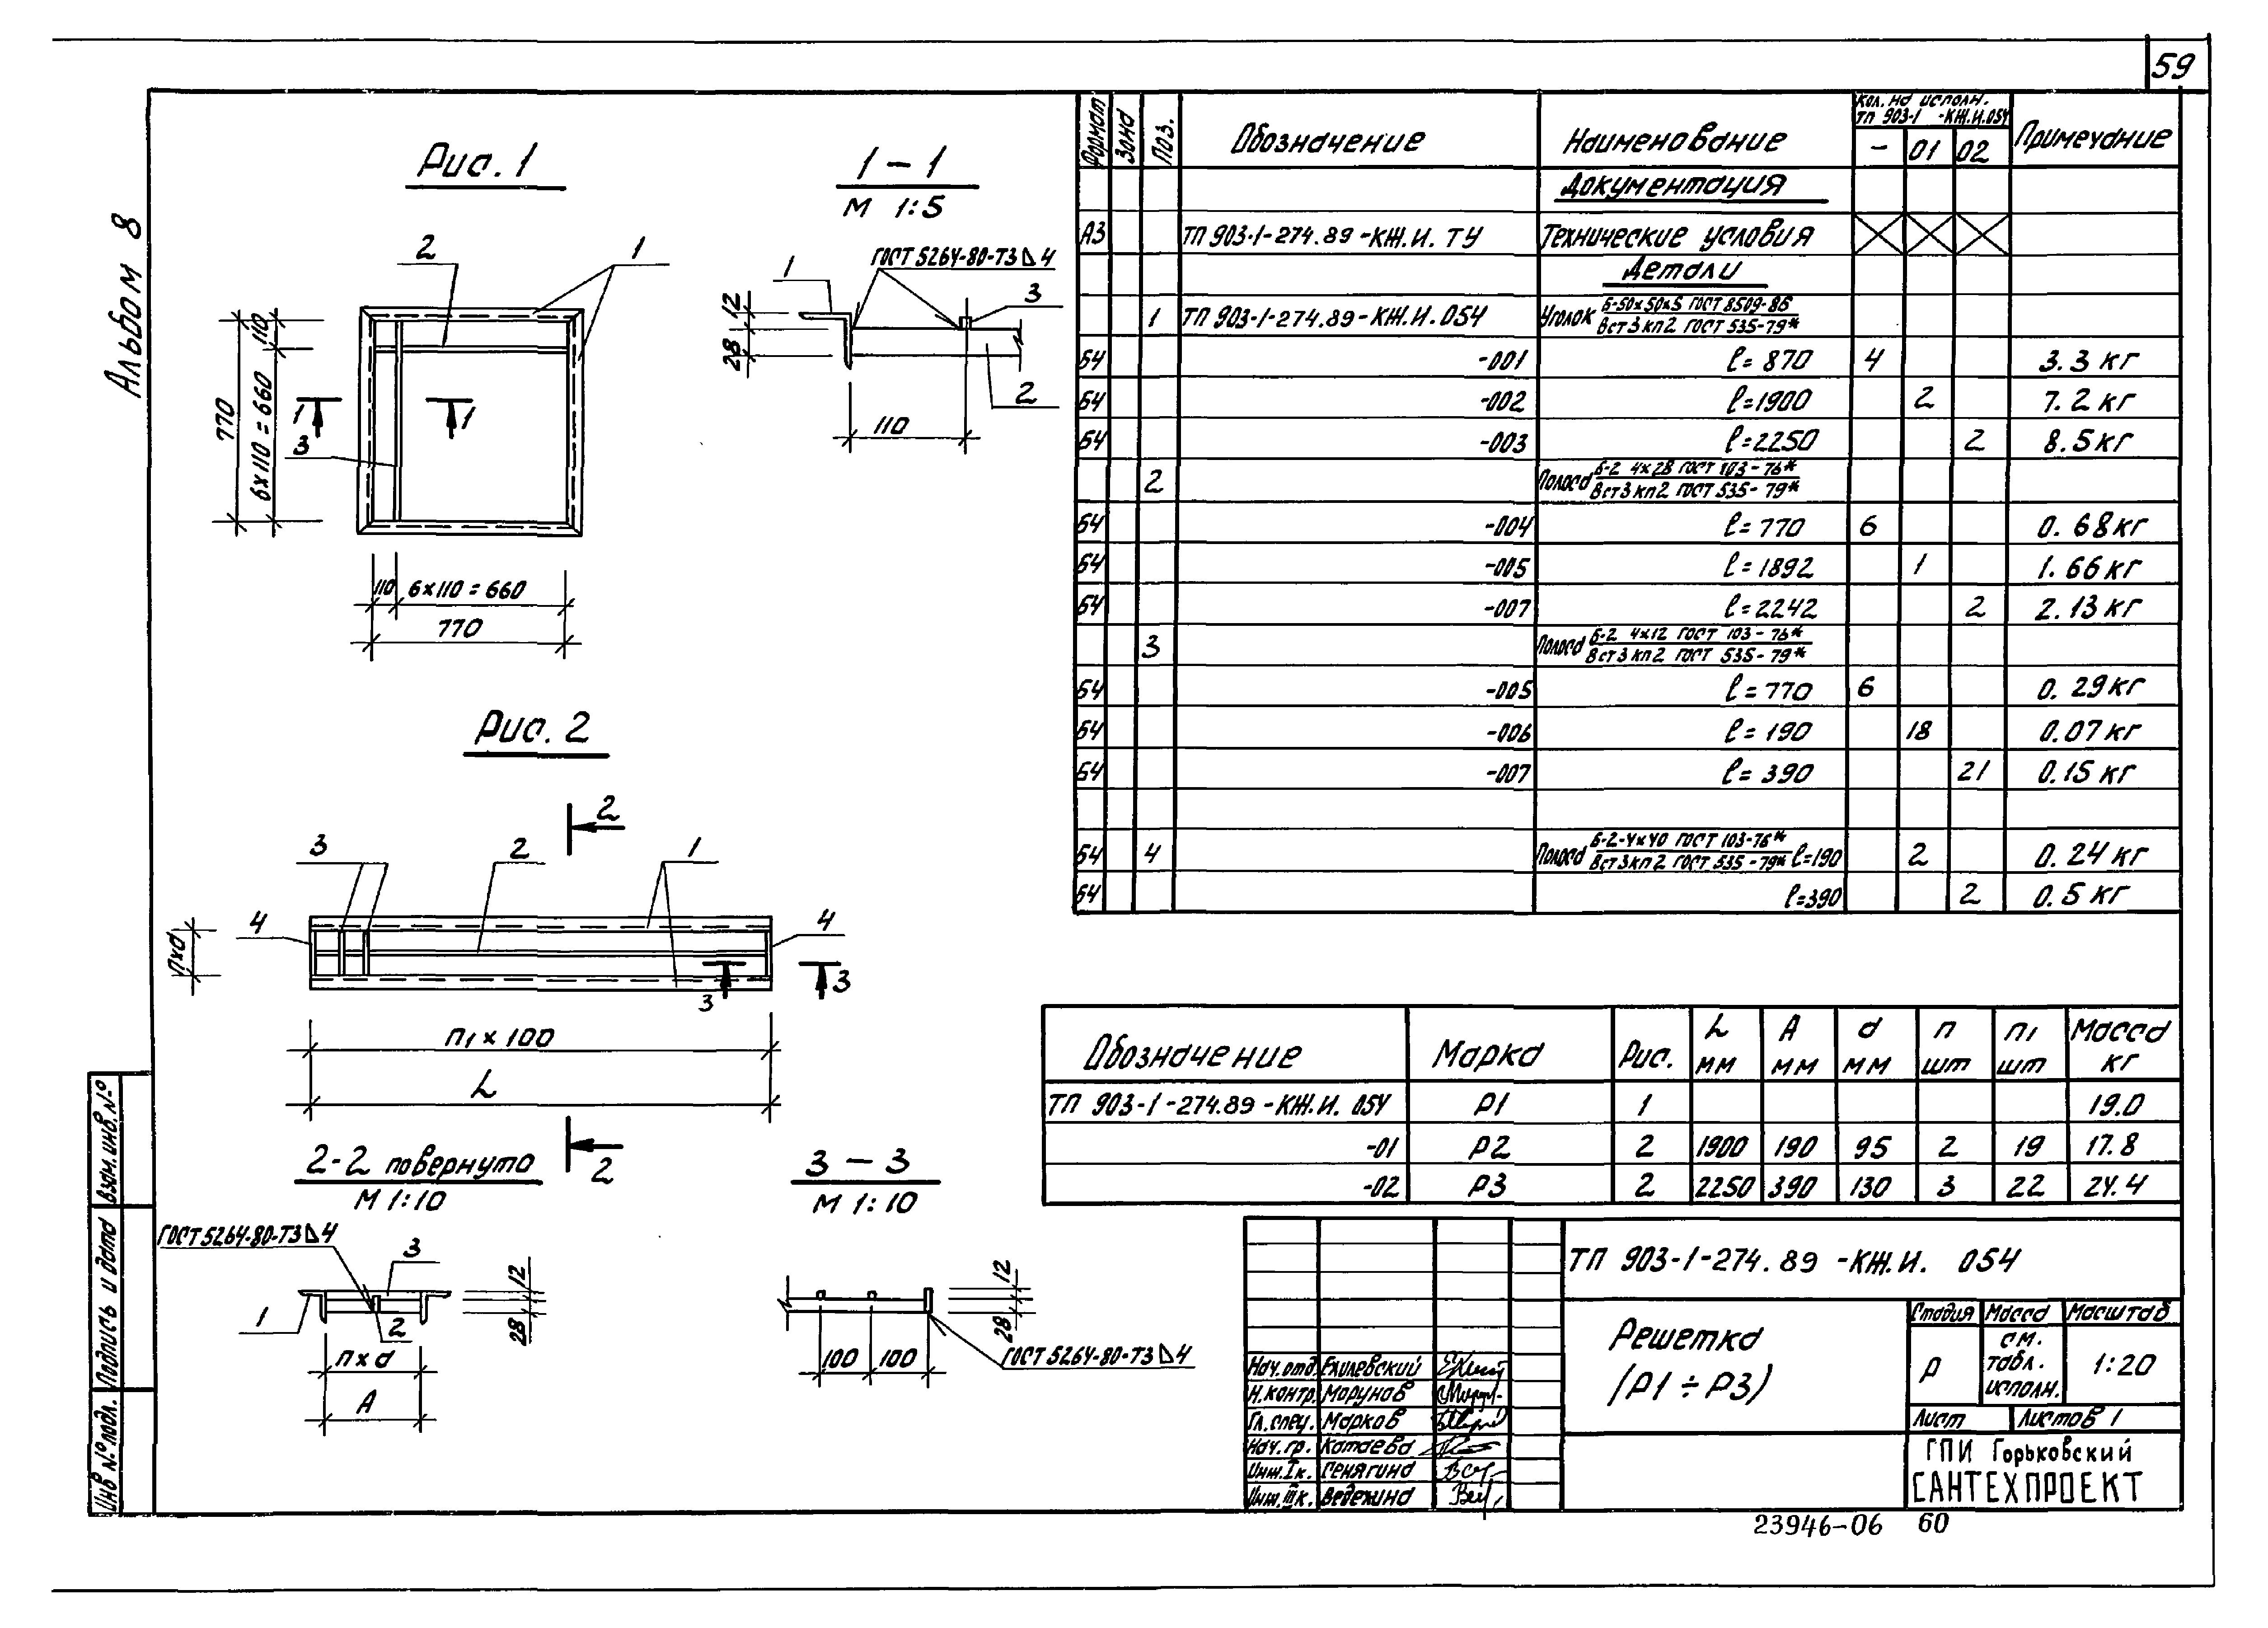 59
Альбом 8
Рис. 1
1
2
770
110
6×110=660
3
1
1
110 6×110=660
770
1-1
М 1:5
ГОСТ 5264-80-Т3 4
1
3
12
28
2
110
Рис. 2
2
3
2
1
4
4
n×d
3
3
n1 × 100
L
2
2-2 повернуто
М 1:10
ГОСТ 5264-80-Т3 4
3
1
2
12
28
n×d
А
3-3
М 1:10
12
28
100 100
ГОСТ 5264-80-Т3 4
Формат Зона Поз. Обозначение Наименование Кол. на исполн. ТП 903-1 -КЖ.И.054 Примечание
- 01 02
Документация
А3 ТП 903-1-274.89-КЖ.И. ТУ Технические условия
Детали
1 ТП 903-1-274.89-КЖ.И.054 Уголок Б-50×50×5 ГОСТ 8509-86
Вст3кп2 ГОСТ 535-79*
БЧ -001 ℓ=870 4 3.3 кг
БЧ -002 ℓ=1900 2 7.2 кг
БЧ -003 ℓ=2250 2 8.5 кг
2 Полоса Б-2 4×28 ГОСТ 103-76*
Вст3кп2 ГОСТ 535-79*
БЧ -004 ℓ=770 6 0.68 кг
БЧ -005 ℓ=1892 1 1.66 кг
БЧ -007 ℓ=2242 2 2.13 кг
3 Полоса Б-2 4×12 ГОСТ 103-76*
Вст3кп2 ГОСТ 535-79*
БЧ -005 ℓ=770 6 0.29 кг
БЧ -006 ℓ=190 18 0.07 кг
БЧ -007 ℓ=390 21 0.15 кг
БЧ 4 Полоса Б-2-4×40 ГОСТ 103-76*
Вст3кп2 ГОСТ 535-79* ℓ=190 2 0.24 кг
БЧ ℓ=390 2 0.5 кг
Обозначение Марка Рис. L мм А мм d мм n шт n1 шт Масса кг
ТП 903-1-274.89-КЖ.И. 054 Р1 1 19.0
-01 Р2 2 1900 190 95 2 19 17.8
-02 Р3 2 2250 390 130 3 22 24.4
ТП 903-1-274.89 -КЖ.И. 054
Решетка
(Р1÷Р3)
Стадия Масса Масштаб
Р см. табл. исполн. 1:20
Лист Листов 1
ГПИ Горьковский
САНТЕХПРОЕКТ
Нач.отд. Ехилевский
Н.контр. Марунов
Гл.спец. Марков
Нач.гр. Катаева
Инж.Iк. Сенягина
Инж.IIIк. Ведехина
Взам.инв.№
Подпись и дата
Инв №подл.
23946-06 60